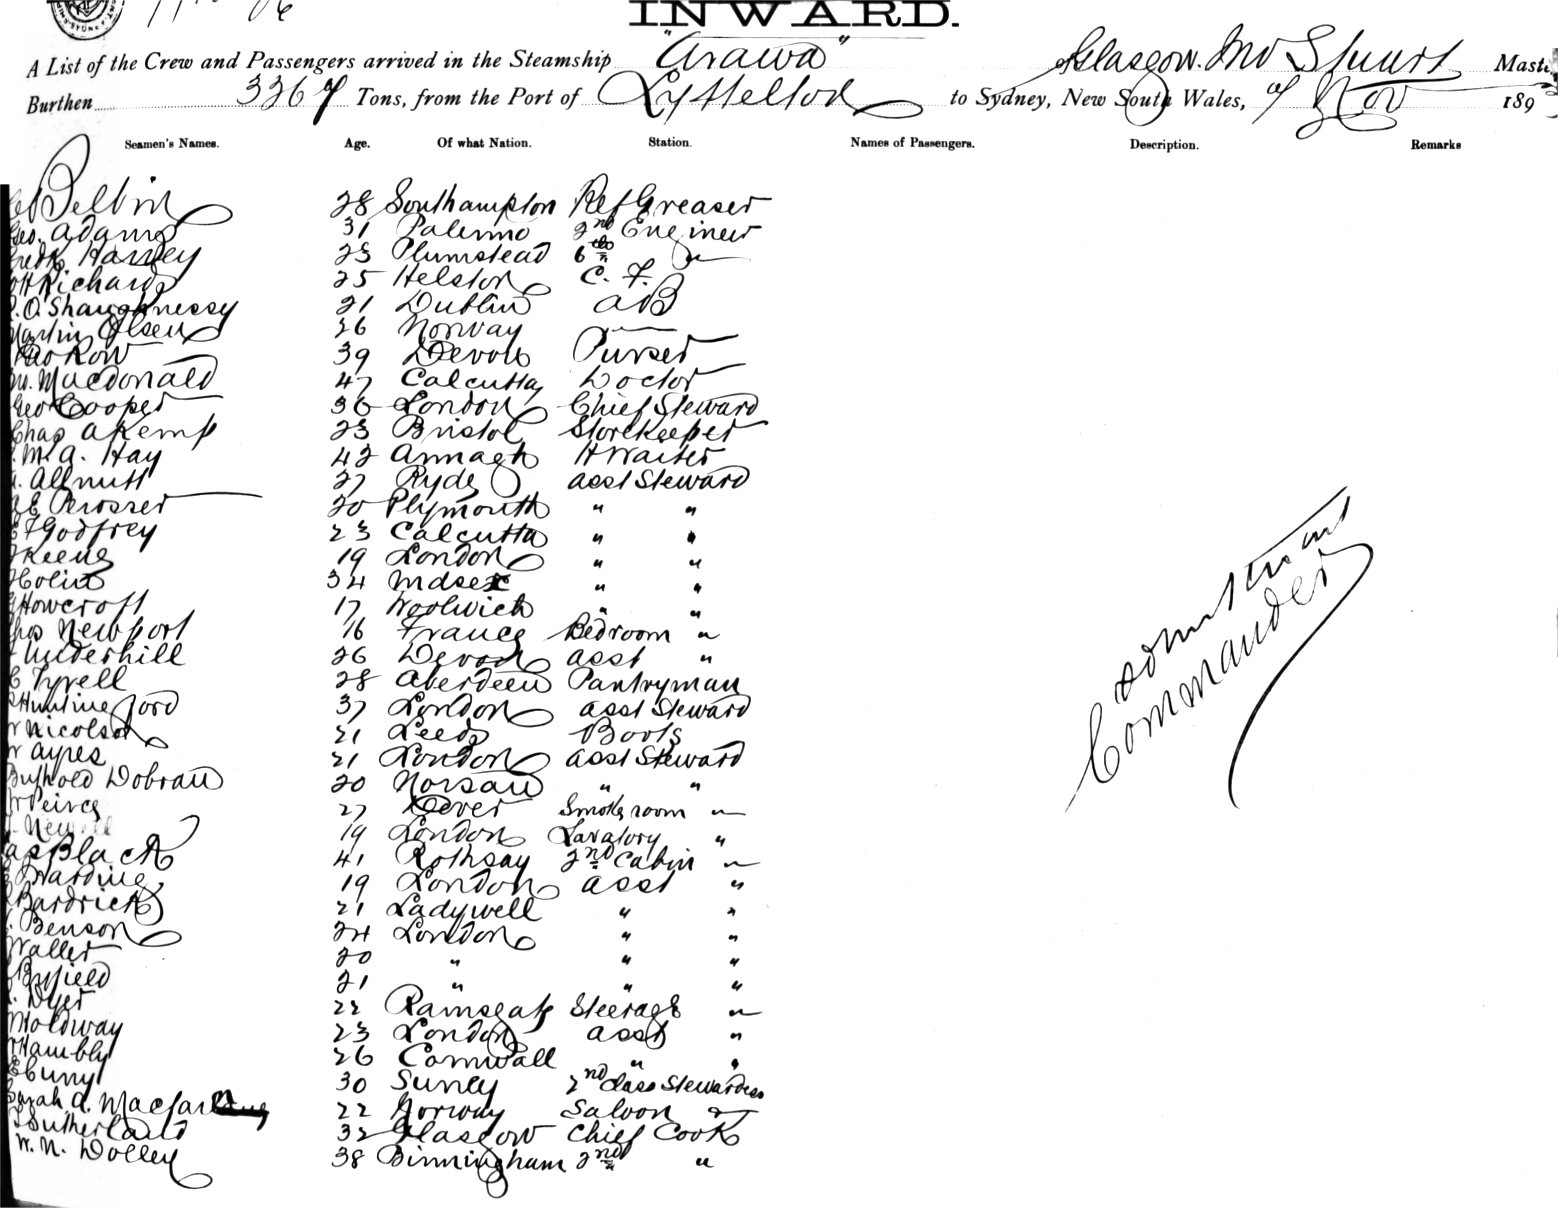 INWARD.
A List of the Crew and Passengers arrived in the Steamship "Arawa" of Glasgow. Jno Stuart Mast
Burthen 3367 Tons, from the Port of Lyttelton to Sydney, New South Wales, of Nov 189
Seamen's Names. Age. Of what Nation. Station. Names of Passengers. Description. Remarks
Belbin 28 Southampton Ref Greaser
Geo. Adams 31 Palermo 2nd Engineer
Fredk Harvey 23 Plumstead 6th "
Richards 25 Helston C. F.
O'Shaughnessy 21 Dublin AB
Martin Olsen 26 Norway "
Row 39 Devon Purser
Macdonald 47 Calcutta Doctor
Geo Cooper 36 London Chief Steward
Chas A Kemp 23 Bristol Storekeeper
Hay 42 Armagh H Waiter
Allnutt 27 Ryde Asst Steward
Prosser 20 Plymouth " "
Godfrey 23 Calcutta " "
Keene 19 London " "
34 Mdsex " "
Howcroft 17 Woolwich " "
Newport 16 France Bedroom "
Underhill 26 Devon Asst "
Tyrell 28 Aberdeen Pantryman
Huntingford 37 London Asst Steward
Nicolson 21 Leeds Boots
Ayres 21 London Asst Steward
Dobrau 20 " "
Peirce 27 Dover Smoke room "
Newell 19 London Lavatory "
Jas Black 41 Rothsay 2nd Cabin "
Harding 19 London Asst "
Bardrick 21 Ladywell " "
Benson 24 London " "
Waller 20 " " "
Byfield 21 " " "
Dyer 22 Ramsgate Steerage "
Holdway 23 London Asst "
Hambly 26 Cornwall " "
30 Surrey 2nd Class Stewardess
Sarah A. Macfarlane 22 Norway Saloon "
Sutherland 32 Glasgow Chief Cook
W. N. Dolley 38 Birmingham 2nd "
Commander